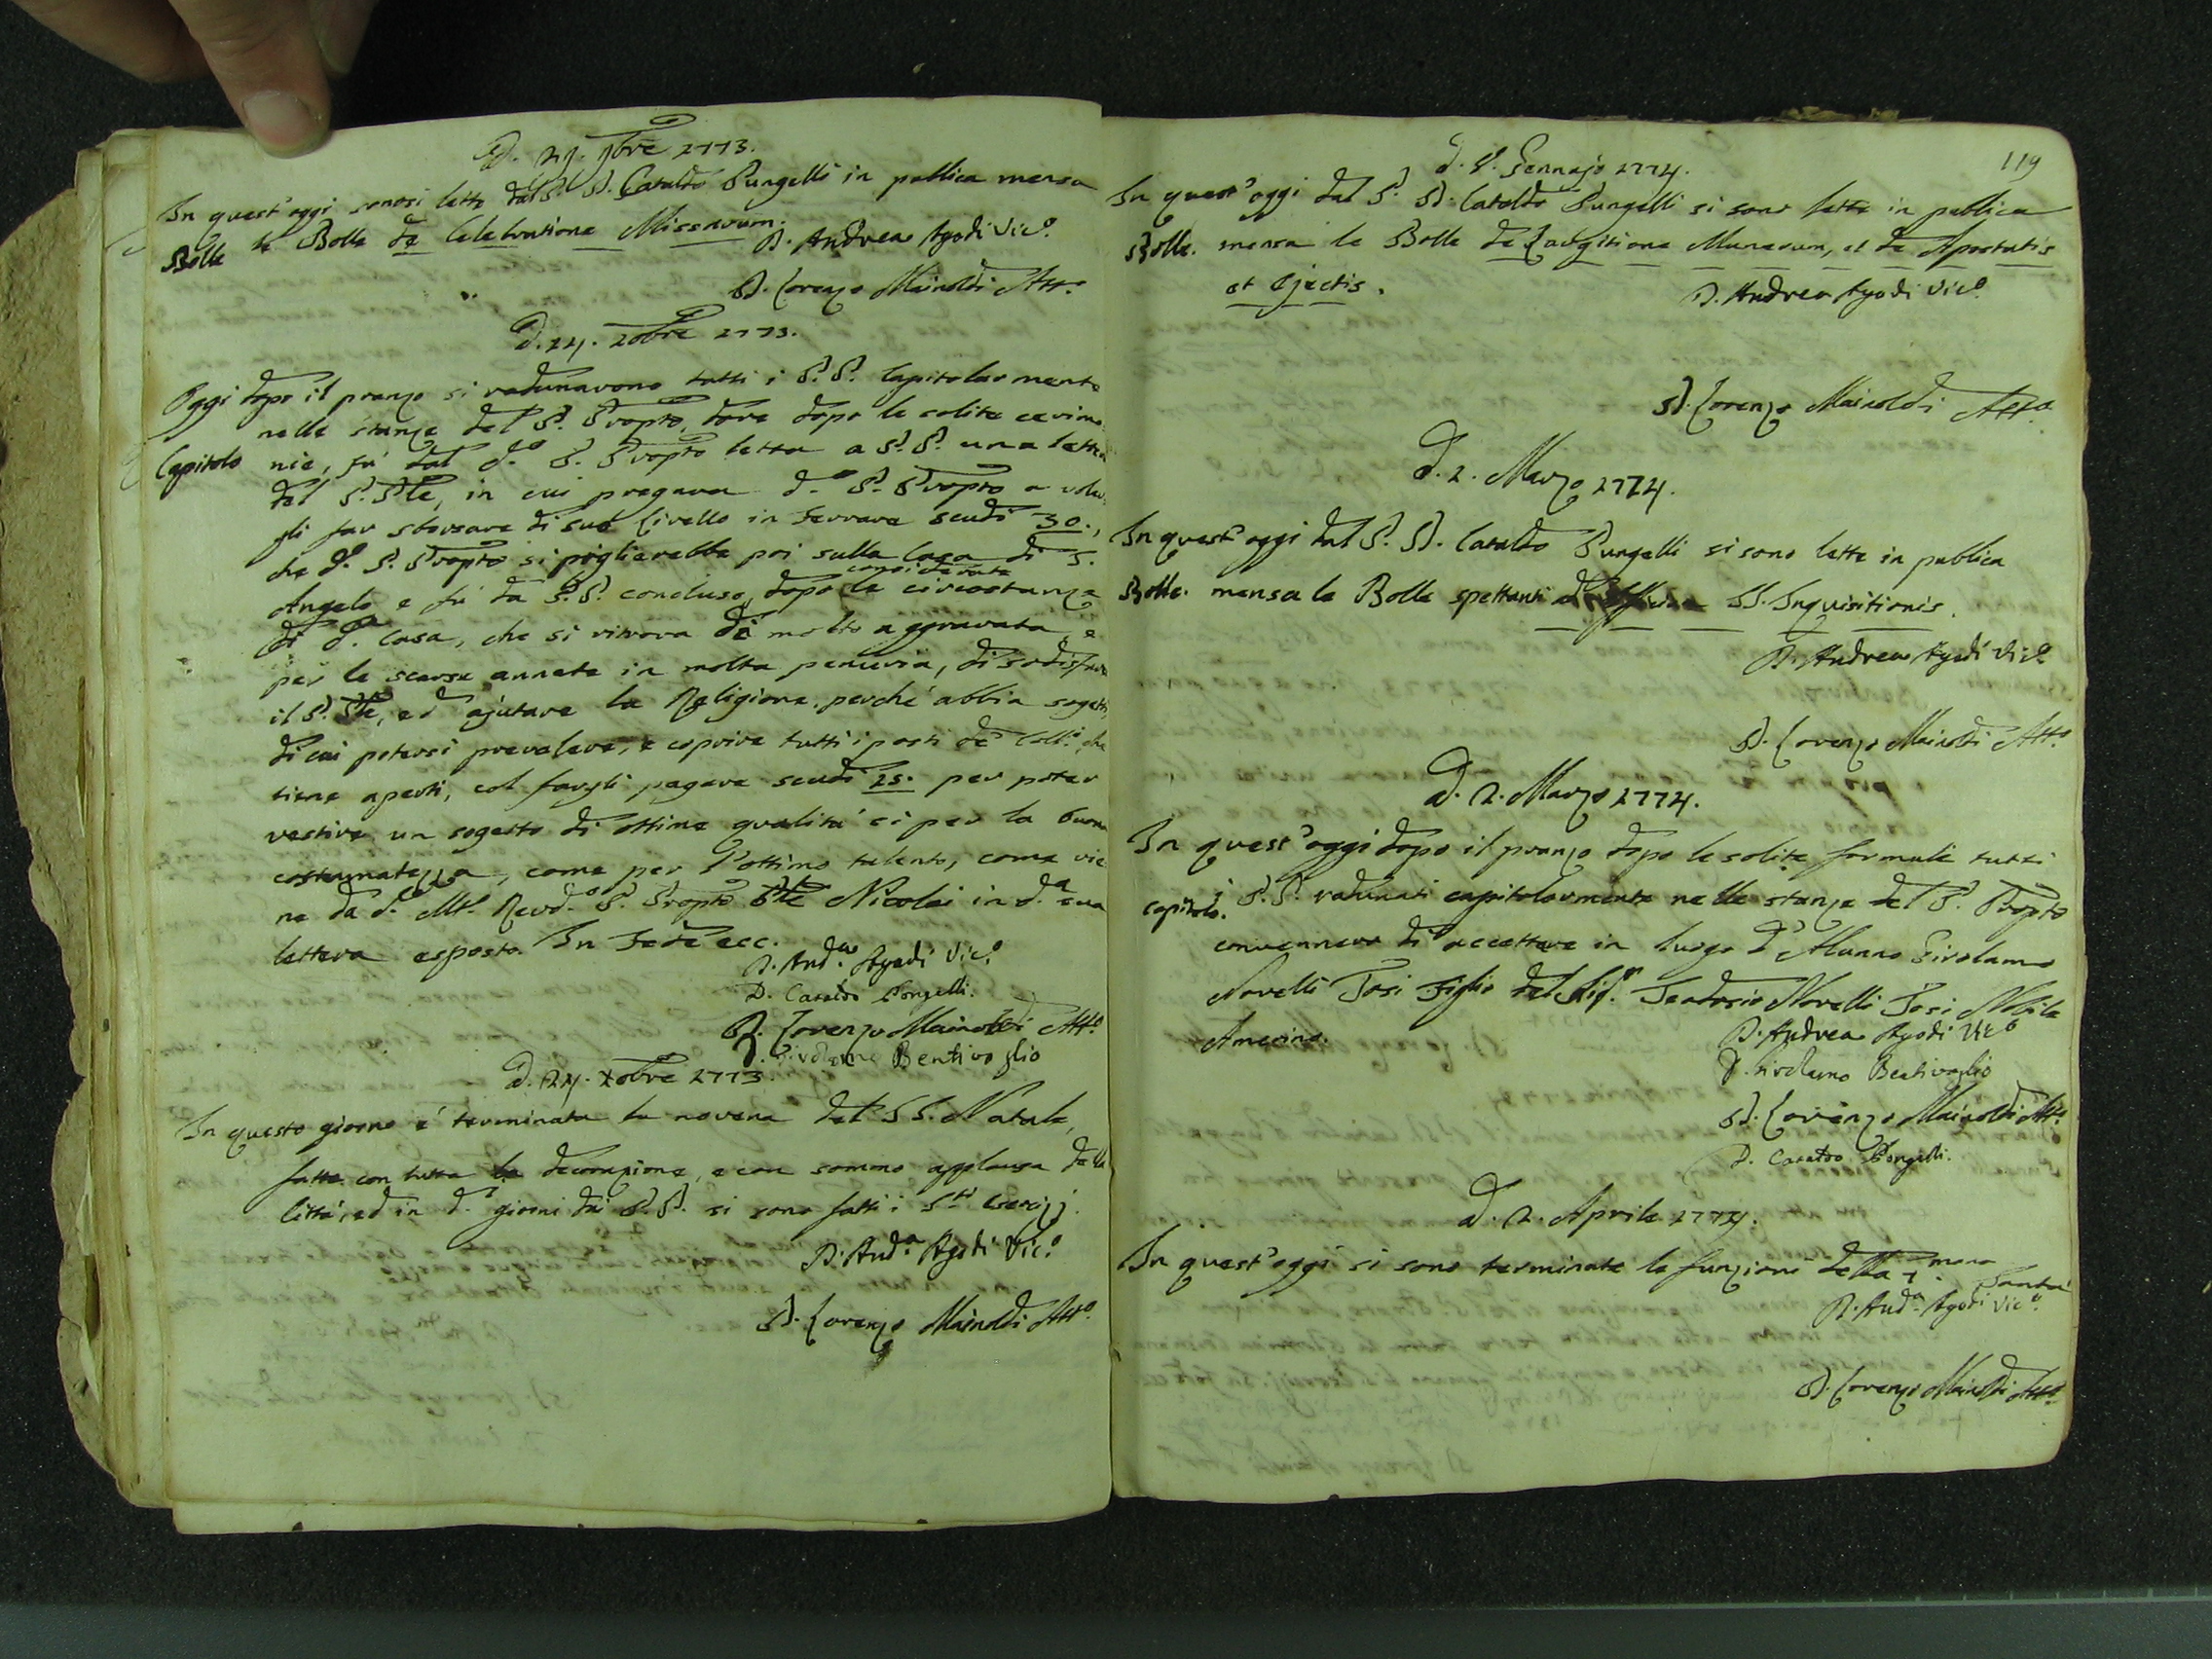 D. 21. 9bre 1773.
In quest'oggi sonosi lette dal P. D. Cataldo Pungelli in publica mensa
Bolle le Bolle de Celebratione Missarum.
D. Andrea Agodi Vic.o
D. Lorenzo Mainoldi Att.o
D. 24. Xobre 1773.
Oggi dopo il pranzo si radunarono tutti i P.P. Capitolarmente
nelle stanze del P. Propto, dove dopo le solite cerimo
Capitolo nie, fu dal d.o P. Propto letta a P.P. una lettera
del P. Ple, in cui pregava d.o P. Propto a voler
gli far sborsare di suo Livello in Ferrara scudi 30.,
che d.o P. Propto si piglierebbe poi sulla Casa di S.
Angelo e fu da P.P. concluso, dopo considerate le circostanze
di d.a Casa, che si ritrova di molto aggravata, e
per le scarse annate in molta penuria, di sodisfare
il P. Ple, ed ajutare la Religione, perché abbia sogetti,
di cui potersi prevalere, e coprire tutti i posti de Coll.i che
tiene aperti, col fargli pagare scudi 25. per poter
vestire un sogetto di ottime qualitá si per la buona
costumatezza, come per l'ottimo talento, come vie
ne da d.o Mt. Revd.o P. Propto Ple Nicolai in d.a sua
lettera esposto. In Fede ecc.
D. And.a Agodi Vic.o
D. Cataldo Pongelli.
D. Lorenzo Mainoldi Att.o
D. Girolamo Bentivoglio
D. 24. Xobre 1773.
In questo giorno é terminata la novena del SS. Natale,
fatta con tutta la decorazione, e con sommo applauso della
Cittá, ed in d.i giorni dai P.P. si sono fatti i S.ti Esercizj.
D. And.a Agodi Vic.o
D. Lorenzo Mainoldi Att.o
119
d. Gennajo 1774.
In quest'oggi dal P. D. Cataldo Pungelli si sono lette in publica
Bolle. mensa le Bolle de Largitione Munerum, et de Apostatis
et Ejectis.
D. Andrea Agodi Vic.o
D. Lorenzo Mainoldi Att.o
d. 2. Marzo 1774.
In quest'oggi dal P. D. Cataldo Pungelli si sono lette in publica
Bolle. mensa le Bolle spettanti SS. Inquisitionis.
D. Andrea Agodi Vic.o
D. Lorenzo Mainoldi Att.o
d. 2. Marzo 1774.
In quest'oggi dopo il pranzo dopo le solite formule tutti
capitolo. i P.P. radunati capitolarmente nelle stanze del P. Propto
convennero di accettare in luogo d'Alunno Girolamo
Novelli Fosi Figlio del Sig.r Teodosio Novelli Fosi Nobile
Amerino.
D. Andrea Agodi Vic.o
D. Girolamo Bentivoglio
D. Lorenzo Mainoldi Att.o
D. Cataldo Pongelli.
d. 2. Aprile 1774.
In quest'oggi si sono terminate le funzioni della 7mana
Santa
D. And.a Agodi Vic.o
D. Lorenzo Mainoldi Att.o